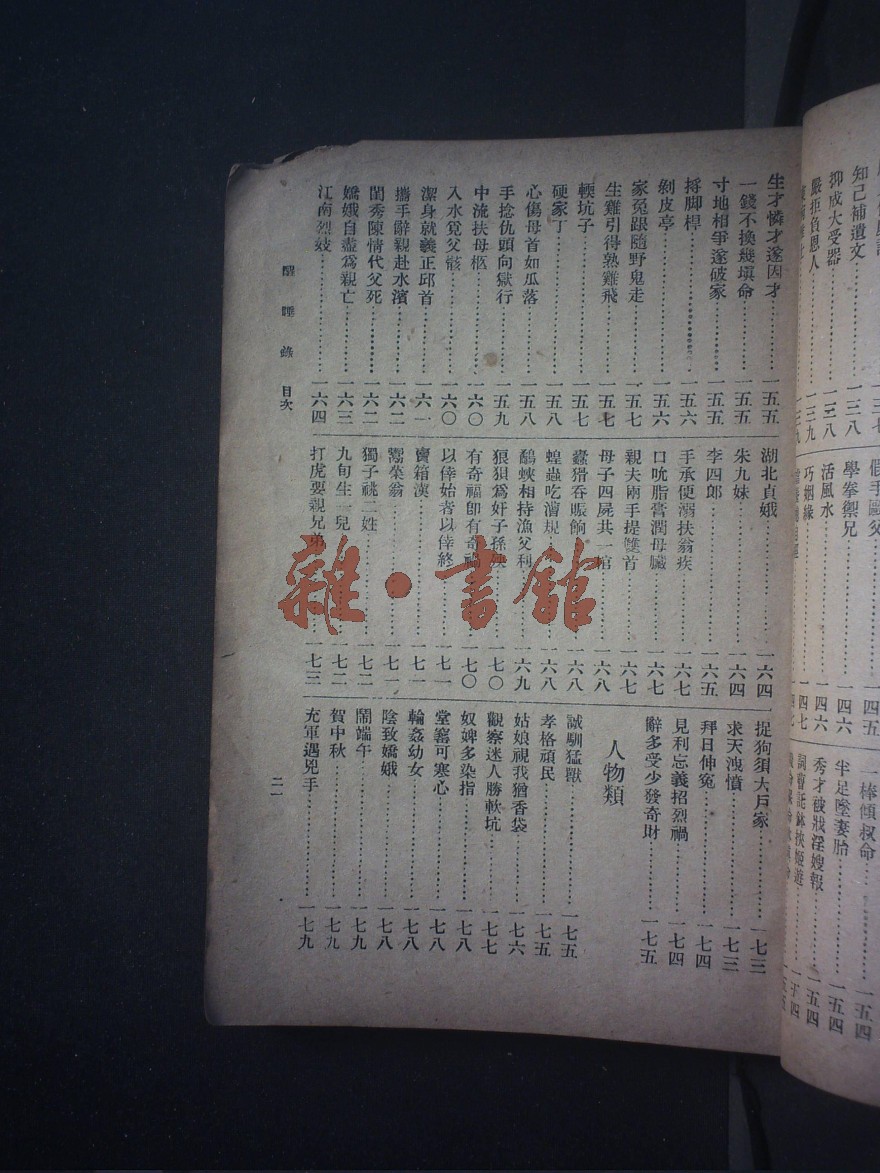 知己補遺文……一三八
抑成大受器……一三八
嚴拒負恩人……一三九
假手毆父……一四五
學拳禦兄……一四六
活風水……一四六
巧姻緣……一四七
一棒傾叔命……一五四
半足墜妻胎……一五四
秀才被戕淫嫂報……一五四
生才憐才遂因才……一五五
一錢不換幾塡命……一五五
寸地相爭遂破家……一五五
捋脚桿……一五六
剝皮亭……一五六
家冤跟隨野鬼走……一五七
生雞引得熟雞飛……一五七
輭坑子……一五七
硬家丁……一五八
心傷母首如瓜落……一五八
手捻仇頭向獄行……一五九
中流扶母柩……一六〇
入水覓父骸……一六〇
潔身就義正邱首……一六一
攜手辭親赴水濱……一六二
閨秀陳情代父死……一六二
嬌娥自盡爲親亡……一六三
江南烈妓……一六四
湖北貞娥……一六四
朱九妹……一六四
李四郎……一六五
手承便溺扶翁疾……一六七
口吮脂膏潤母臟……一六七
親夫兩手提雙首……一六七
母子四屍共一棺……一六八
蠹猾吞賑餉……一六八
蝗蟲吃漕規……一六八
鷸蚌相持漁父利……一六九
狼狽爲奸子孫殃……一七〇
有奇福卽有奇禍……一七〇
以倖始者以倖終……一七一
賣箱漢……一七一
鬻菜翁……一七一
獨子祧二姓……一七二
九旬生一兒……一七二
打虎要親兄弟……一七三
捉狗須大戶家……一七三
求天洩憤……一七三
拜日伸冤……一七四
見利忘義招烈禍……一七四
辭多受少發奇財……一七五
人物類
誠馴猛獸……一七五
孝格頑民……一七五
姑娘視我猶香袋……一七六
觀察迷人勝軟坑……一七七
奴婢多染指……一七八
堂客可寒心……一七八
輪姦幼女……一七八
陰致嬌娥……一七八
鬧端午……一七九
賀中秋……一七九
充軍遇兇手……一七九
醒睡錄 目次
二一
雜·書館